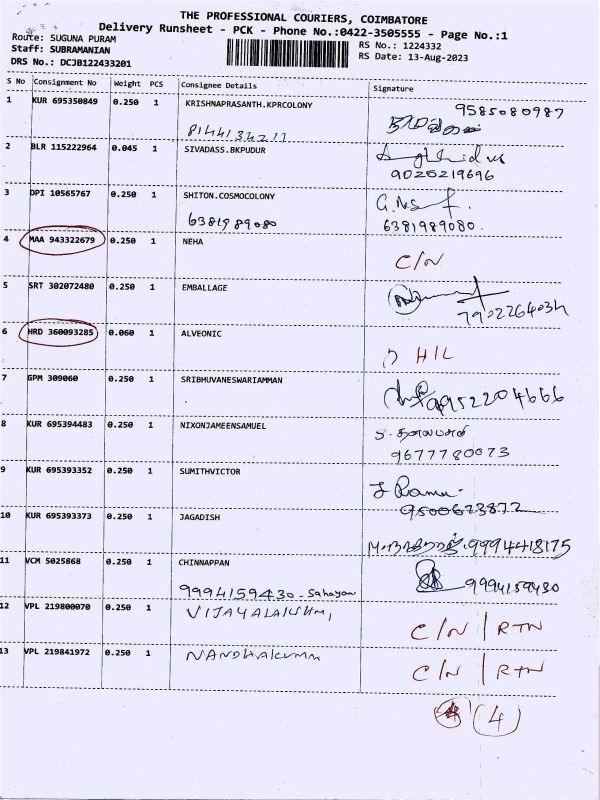 THE PROFESSIONAL COURIERS, COIMBATORE
Delivery Runsheet - PCK - Phone No.:0422-3505555 - Page No.:1
Route: SUGUNA PURAM
Staff: SUBRAMANIAN
DRS No.: DCJB122433201
RS No.: 1224332
RS Date: 13-Aug-2023
S No Consignment No Weight PCS Consignee Details Signature
1 KUR 695350849 0.250 1 KRISHNAPRASANTH.KPRCOLONY 9585080987
8144134211
2 BLR 115222964 0.045 1 SIVADASS.BKPUDUR
9025219696
3 DPI 10565767 0.250 1 SHITON.COSMOCOLONY
6381989080 6381989080.
4 MAA 943322679 0.250 1 NEHA C/N
5 SRT 302072480 0.250 1 EMBALLAGE
7902264034
6 HRD 360093285 0.060 1 ALVEONIC H/L
7 GPM 309060 0.250 1 SRIBHUVANESWARIAMMAN
9952204666
8 KUR 695394483 0.250 1 NIXONJAMEENSAMUEL
9677780073
9 KUR 695393352 0.250 1 SUMITHVICTOR J Ramu.
9500623872
10 KUR 695393373 0.250 1 JAGADISH 9994418175
11 VCM 5025868 0.250 1 CHINNAPPAN
9994159430 - Sahayam 9994159430
12 VPL 219800070 0.250 1 VIJAYALAKSHMI C/N / RTN
13 VPL 219841972 0.250 1 NANDHAKUMAR C/N / RTN
(4)